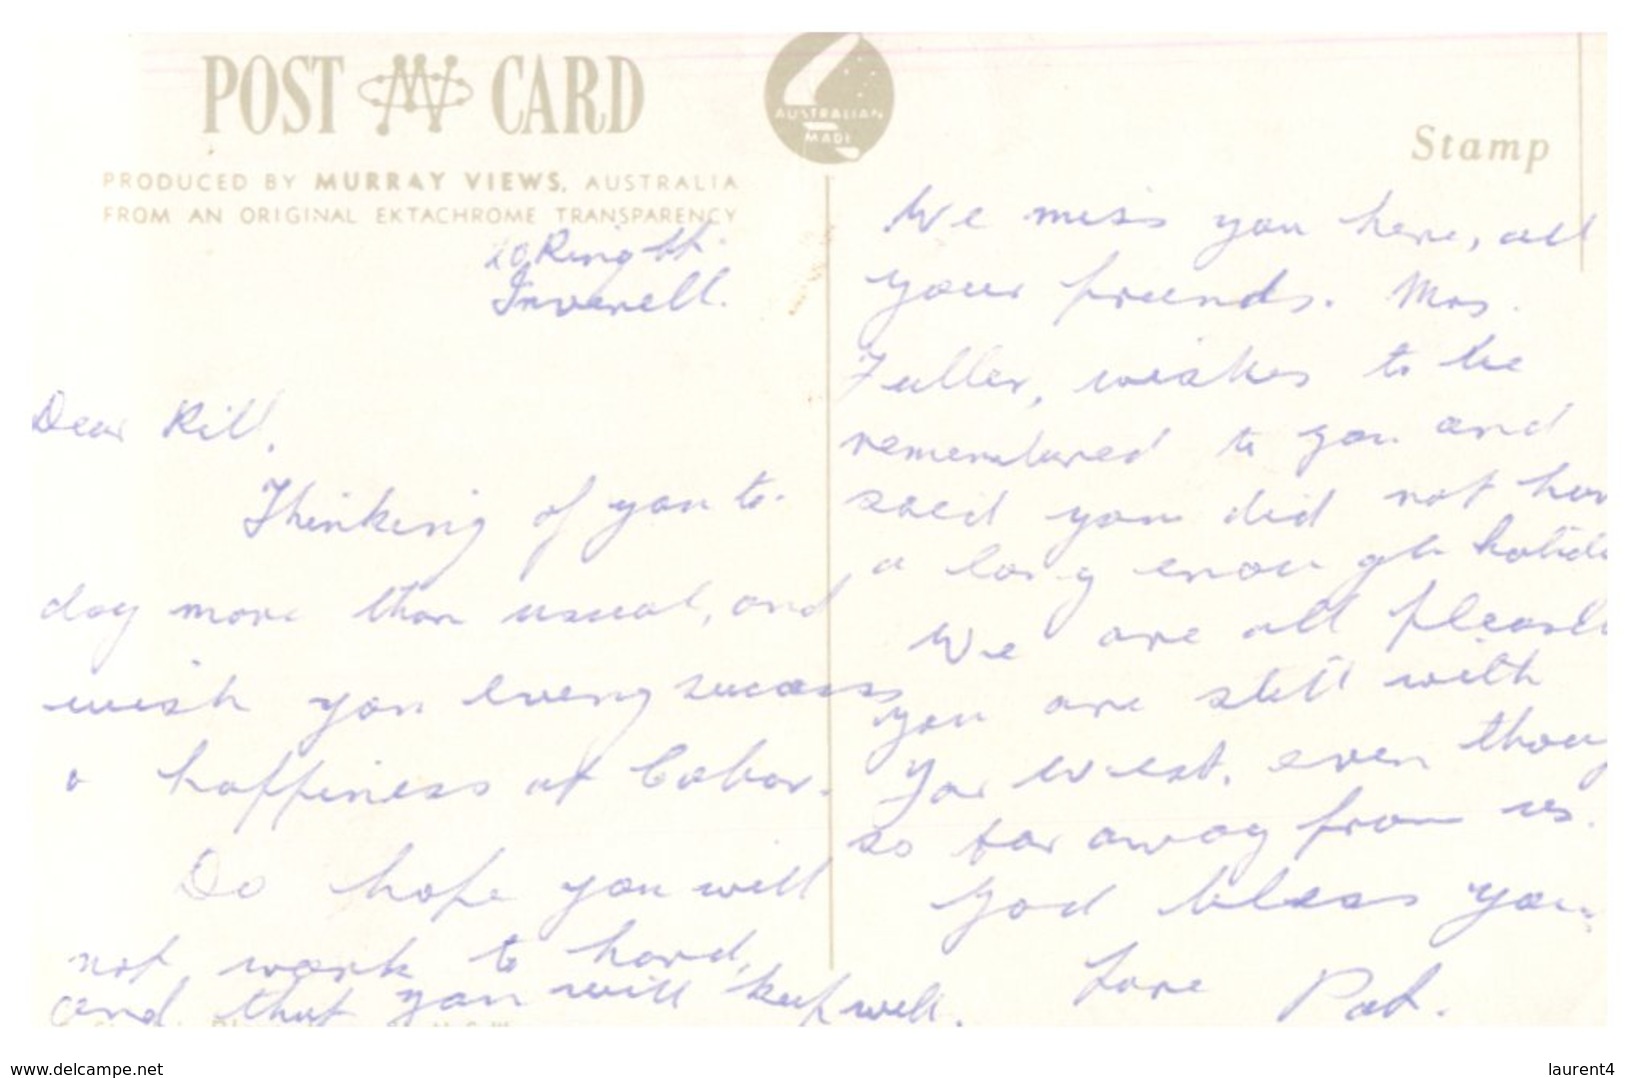 POST CARD
AUSTRALIAN
MADE
Stamp
PRODUCED BY MURRAY VIEWS, AUSTRALIA
FROM AN ORIGINAL EKTACHROME TRANSPARENCY
Ring St.
Inverell.
Dear Rill,
Thinking of you to-
day more than usual, and
wish you every success
& happiness at Cobar.
Do hope you will
not work to hard,
and that you will keep well.
We miss you here, all
your friends. Mrs.
Fuller, wishes to be
remembered to you and
said you did not hav
a long enough holida
We are all pleased
you are still with
Far West, even thoug
so far away from us.
God bless you,
Love Pat.
www.delcampe.net
laurent4